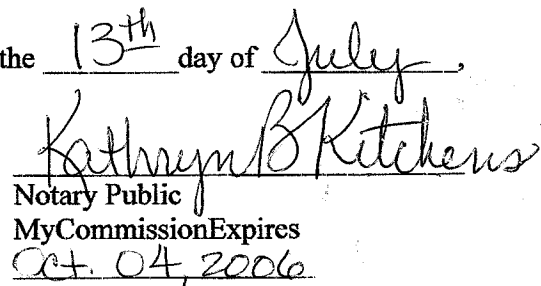 the 13th day of July,
Kathryn B Kitchens
Notary Public
MyCommissionExpires
Oct. 04, 2006